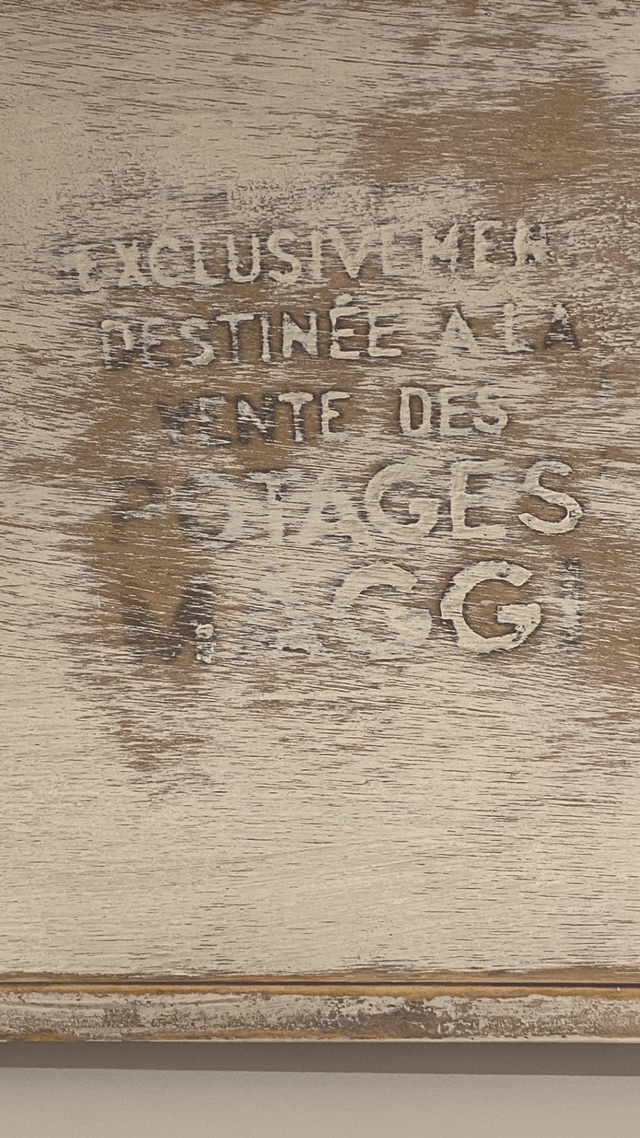 EXCLUSIVEMENT
DESTINÉE A LA
VENTE DES
POTAGES
MAGGI